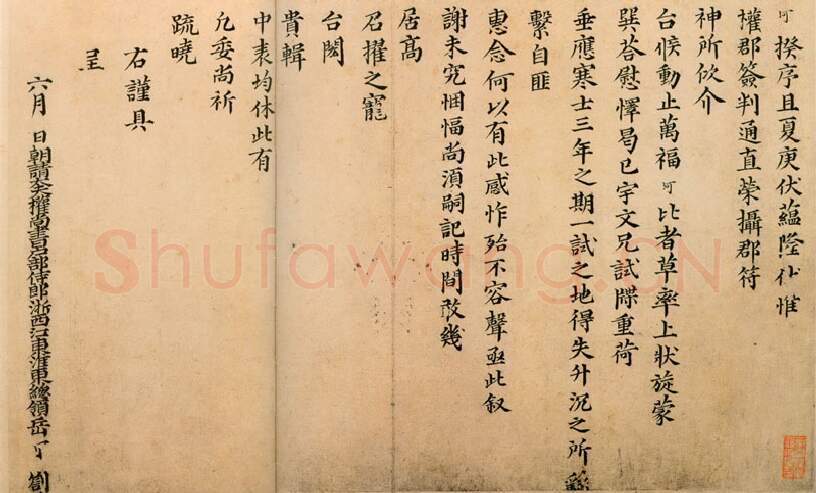 珂 揆序且夏庚伏蘊隆惟
權郡簽判通直榮攝郡符
神所佽介
台候動止萬福珂比者草率上狀旋蒙
巽荅慰懌曷已宇文兄試牒重荷
垂應寒士三年之期一試之地得失升沉之所繇
繫自匪
惠念何以有此感怍殆不容聲亟此叙
謝未究悃愊尚須嗣記時間
居高
召擢之寵
台闕
貴輯
中表均休此有
凢委尚祈
疏曉
右謹具
呈
六月 日朝請大夫權尚書户部侍郎浙西江東淮東總領岳珂 劄
Shufawang.CN